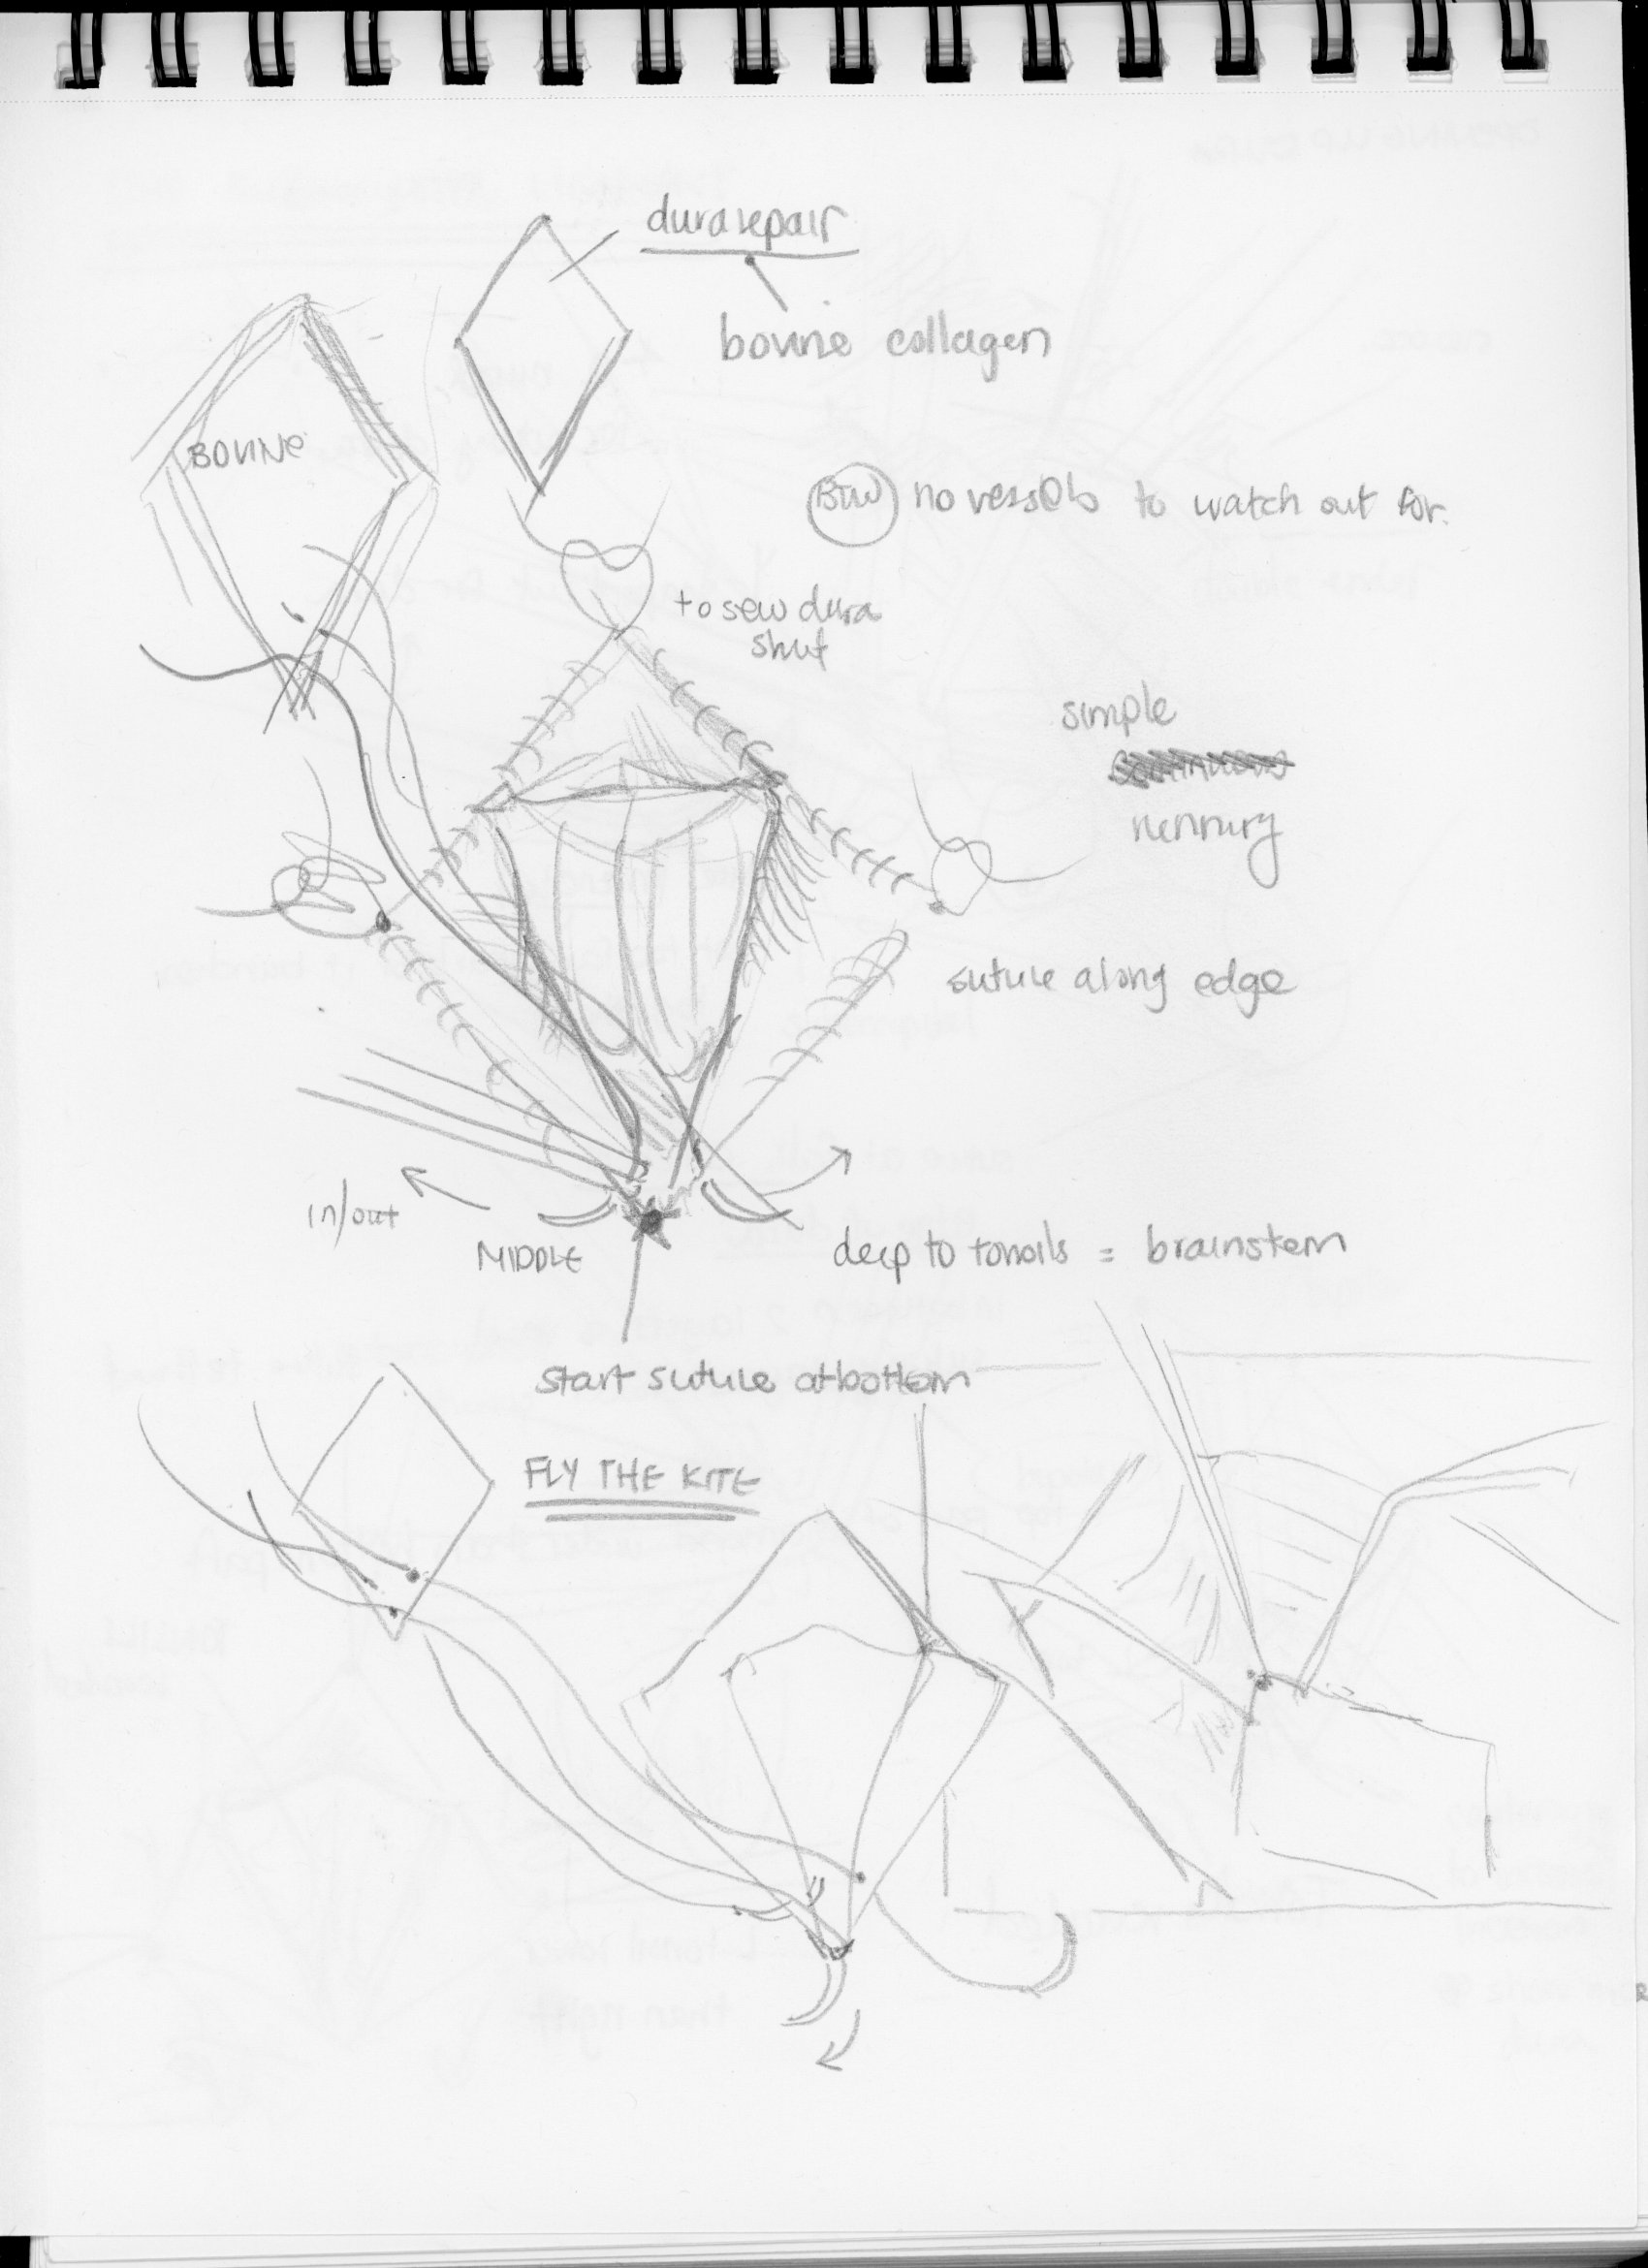 durarepair
bovine collagen
BOVINE
BTW no vessels to watch out for.
to sew dura
shut
simple
running
suture along edge
in/out
MIDDLE
deep to tonsils = brainstem
start suture at bottom
FLY THE KITE